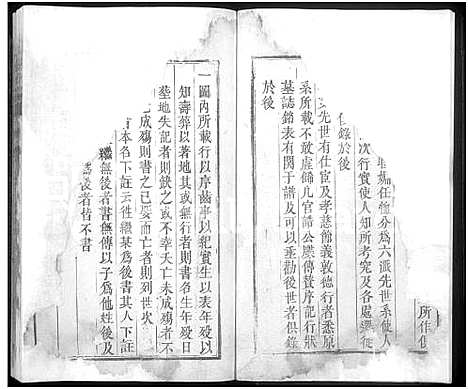 所作
派任僧分為六派先世系使人
次行實使人知所考究及各處遷徙
錄於後
先世有仕宦及孝慈節義敦德行者悉原
系所載不敢虛飾凡官誥公牒傳贊序記行狀
墓誌銘表有関于譜及可以垂勸後世者俱錄
於後
一圖內所載行以序齒事以紀實生以表年歿以
知壽葬以著地其或無行者則書名生年歿日
塟地失記者則缺之或不幸夭亡未成殤者不
已成殤則書之已娶而亡者則列世次
本名下註云維繼某為後書其人下註
繼無後者書無傳以子為他姓後及
為後者皆不書